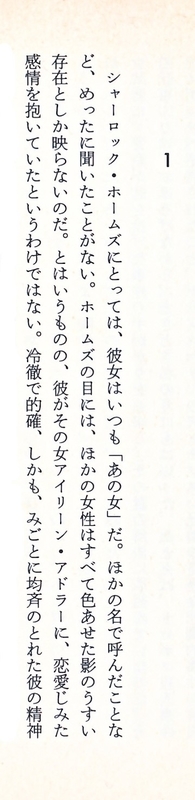 1
シャーロック・ホームズにとっては、彼女はいつも「あの女」だ。ほかの名で呼んだことな
ど、めったに聞いたことがない。ホームズの目には、ほかの女性はすべて色あせた影のうすい
存在としか映らないのだ。とはいうものの、彼がその女アイリーン・アドラーに、恋愛じみた
感情を抱いていたというわけではない。冷徹で的確、しかも、みごとに均斉のとれた彼の精神